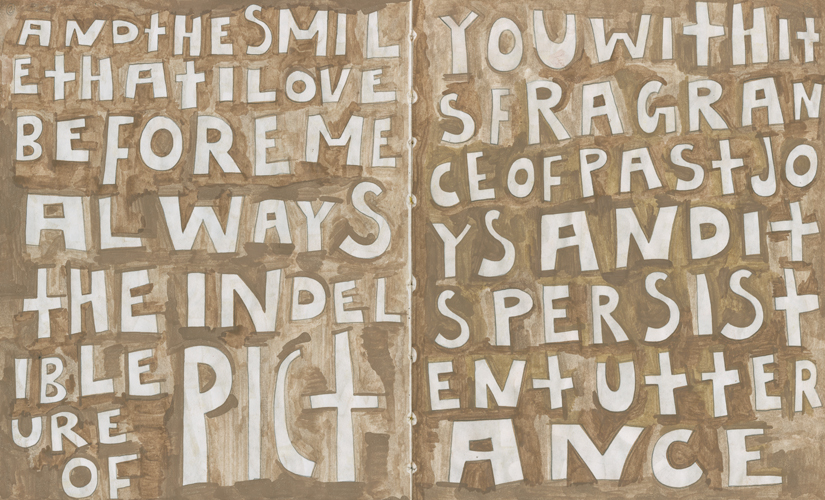 ANDtHESMIL
EtHAtILOVE
BEFORE ME
ALWAYS
tHE INDEL
IBLE PICt
URE
OF
YOUWItHIt
SFRAGRAN
CEOFPAStJO
YSANDIt
SPERSISt
ENtUttER
ANCE